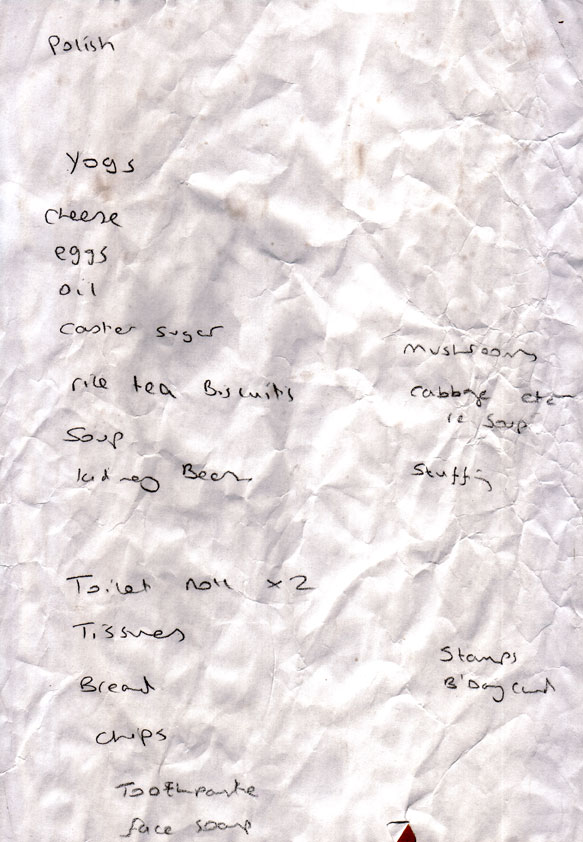 Polish
Yogs
Cheese
eggs
oil
Caster suger
rice tea Biscuits
Soup
kidney Beans
Toilet roll x2
Tissues
Bread
Chips
Toothpaste
face soap
Mushrooms
Cabbage etc
ie Soup
Stuffing
Stamps
B'Day Card